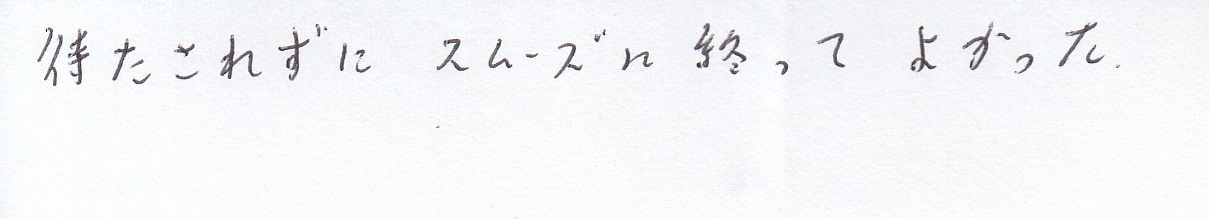 待たされずに スムーズに 終って よかった.